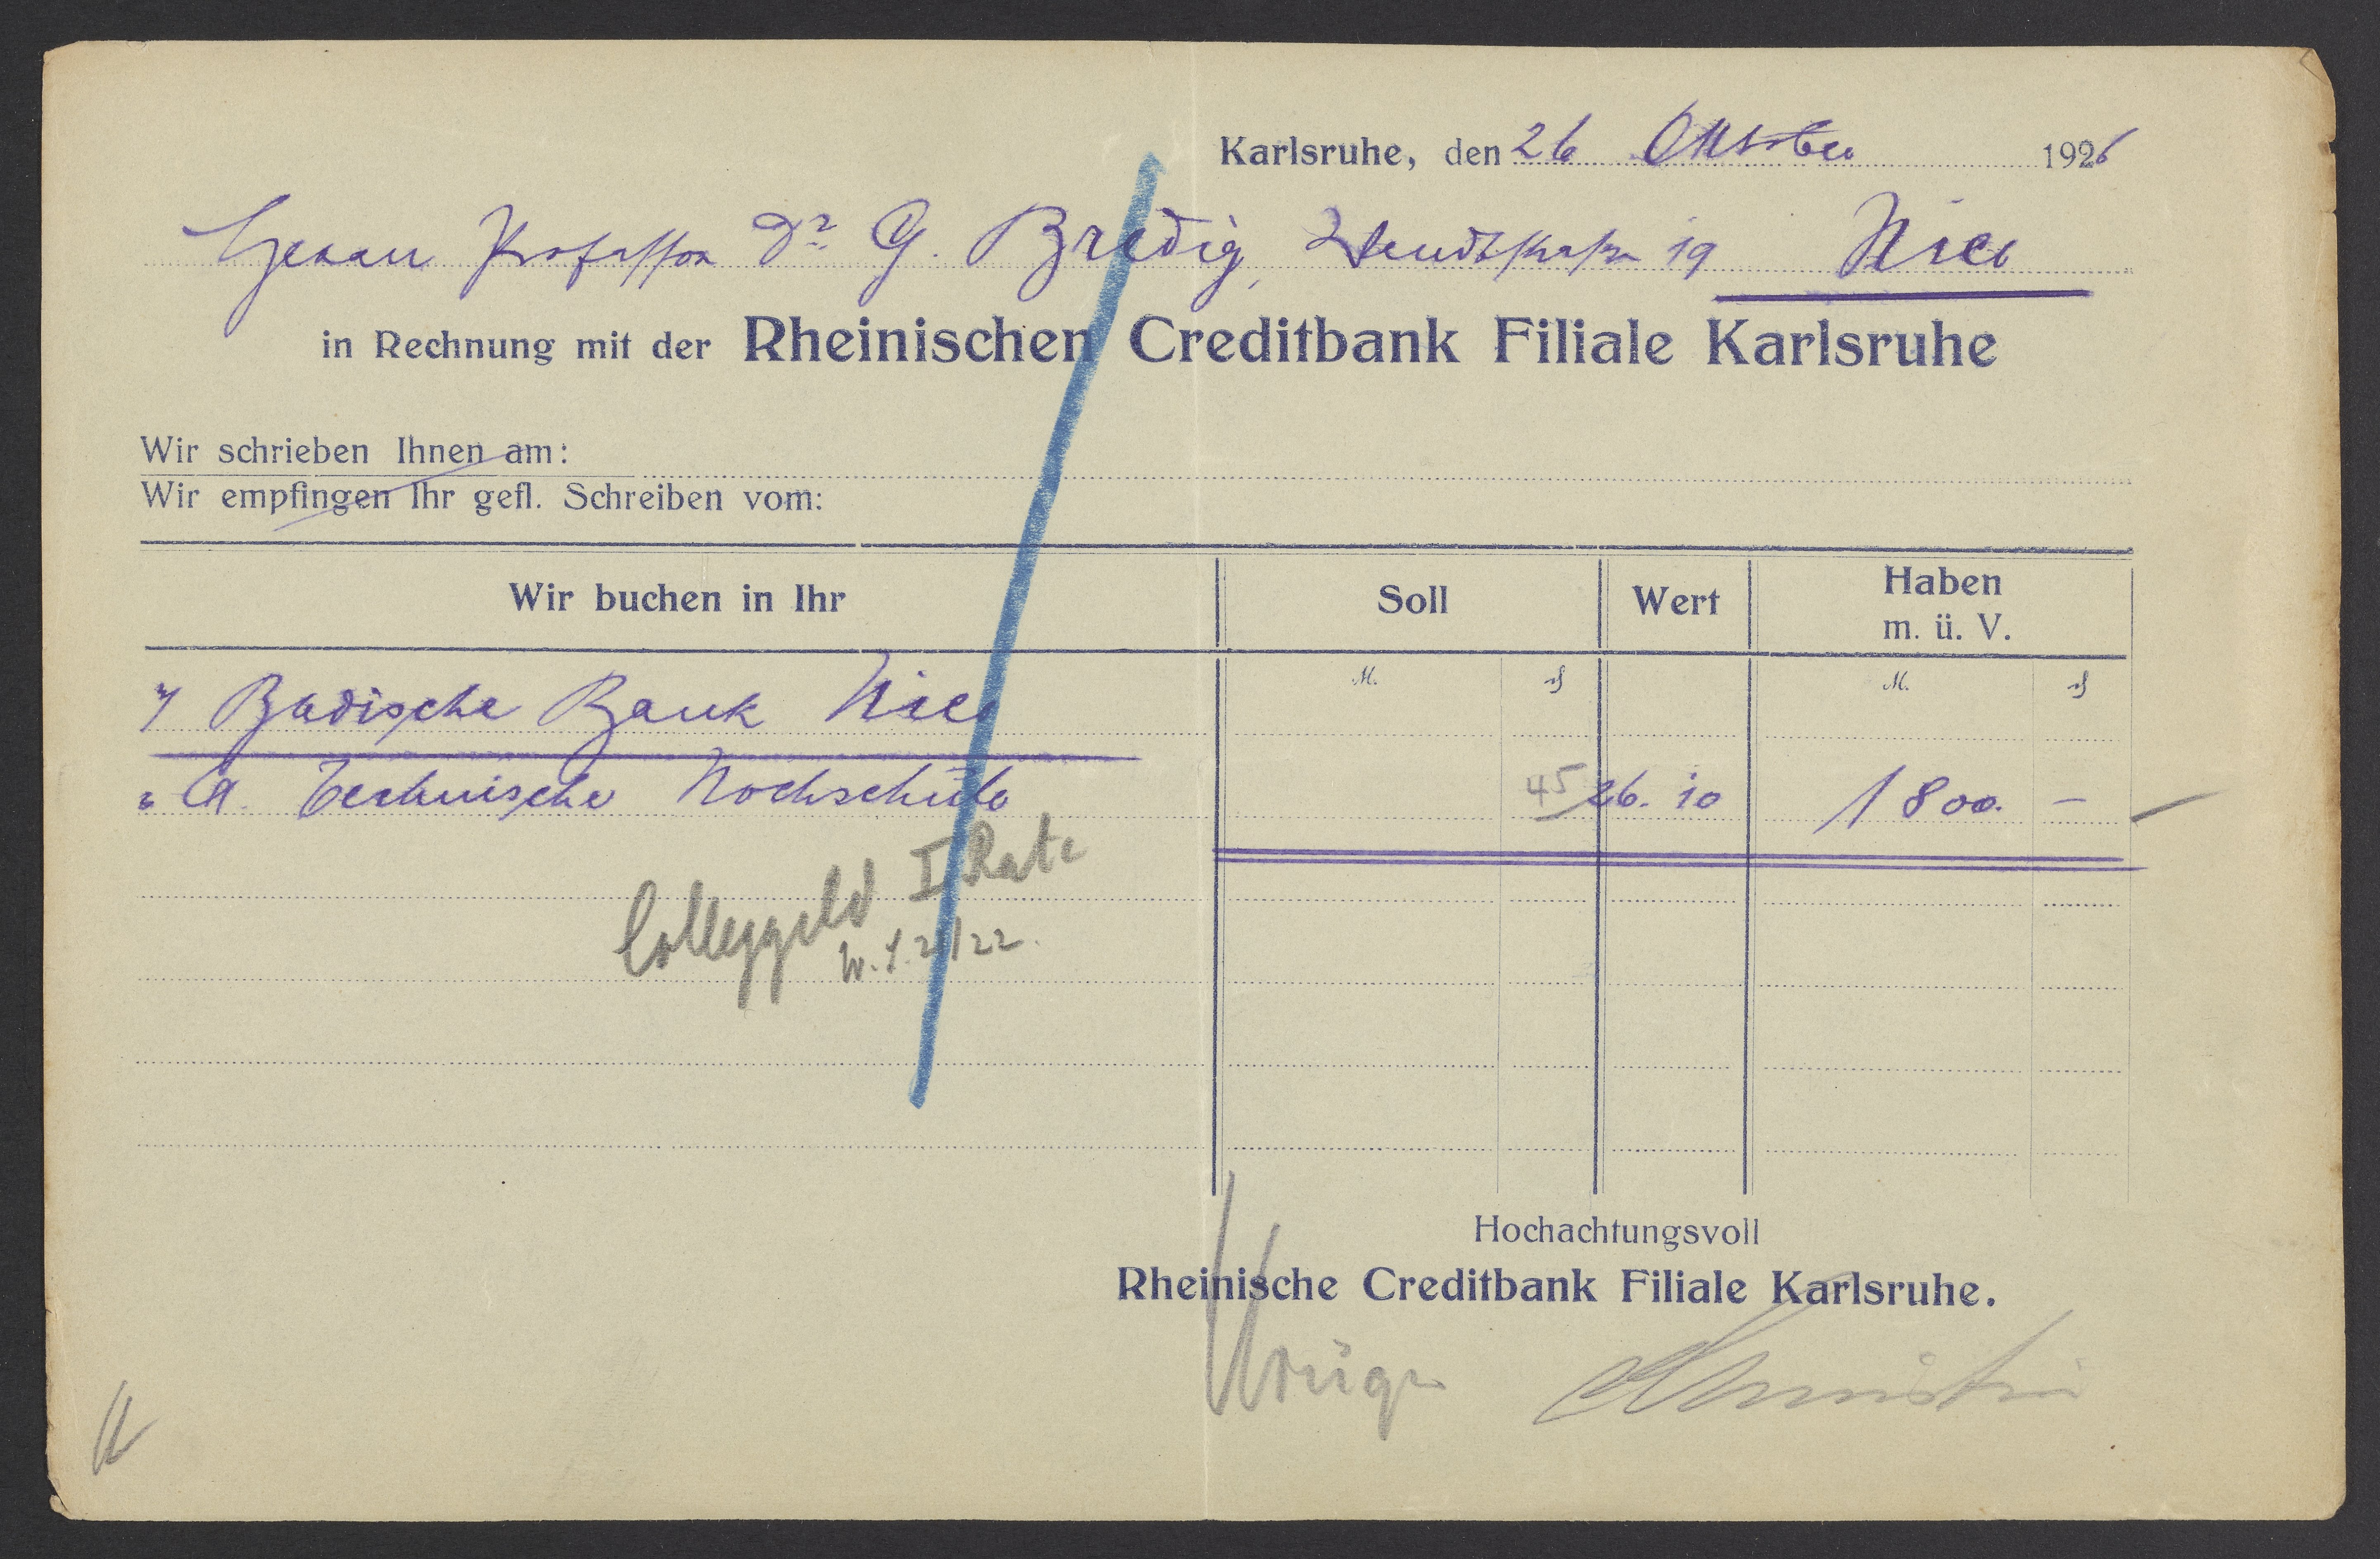 Karlsruhe, den 26 Oktober 1926
Herrn Professor Dr. G. Bredig, Wendtstraße 19 Hier
in Rechnung mit der Rheinischen Creditbank Filiale Karlsruhe
Wir schrieben Ihnen am:
Wir empfingen Ihr gefl. Schreiben vom:
Wir buchen in Ihr Soll Wert Haben
m. ü. V.
M. ₰ M. ₰
Badische Bank Hier
Technische Hochschule 45 26. 10 1800. –
Colleggeld I Rate
W. S. 21/22.
Hochachtungsvoll
Rheinische Creditbank Filiale Karlsruhe.